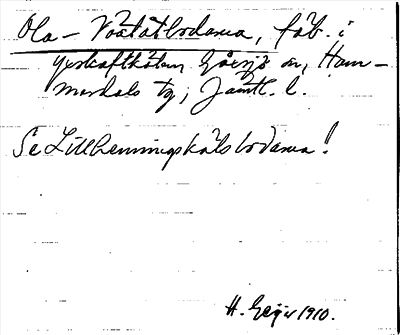 Ola-Voatåtbodarna, fäb. i
Gåxsjö sn, Ham-
merdals tg, Jämtl. l.
Se Lillhemmingskålsbodarna!
H. Geijer 1910.